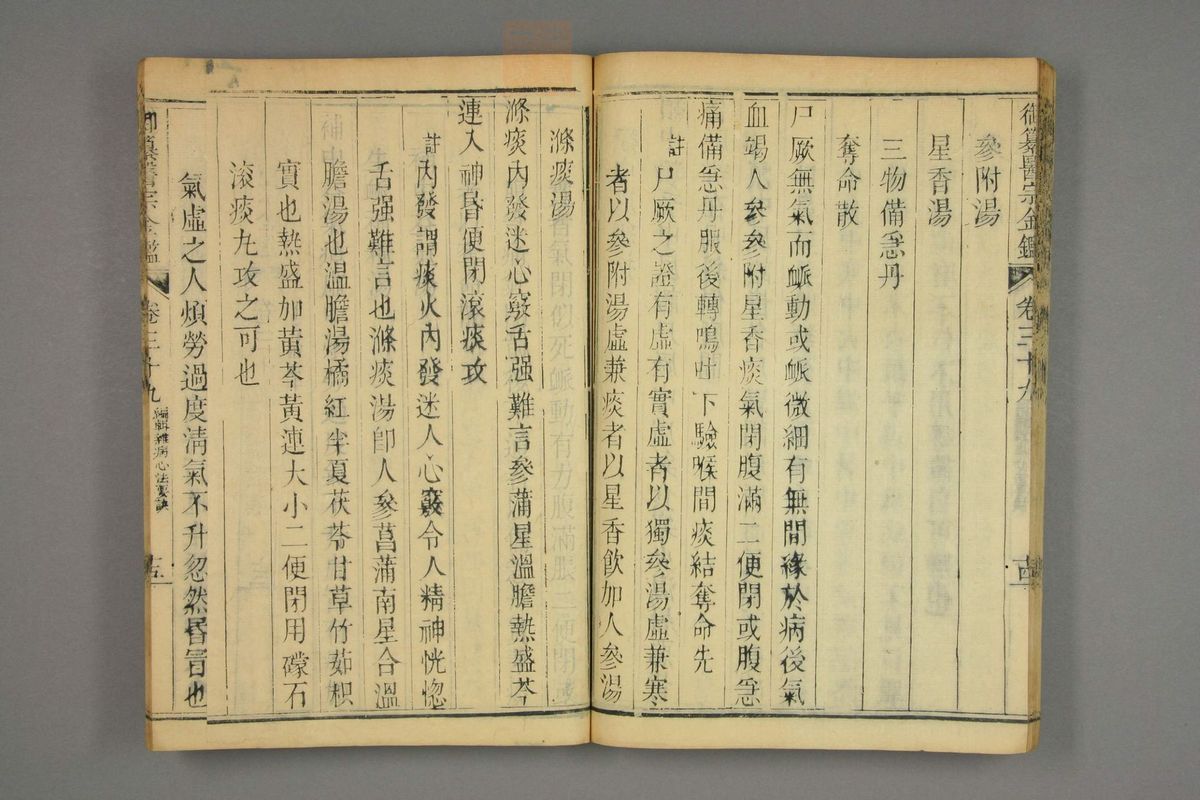 御纂醫宗金鑑 卷三十九 十四
參附湯
星香湯
三物備急丹
奪命散
尸厥無氣而脈動或脈微細有無間緣於病後氣
血竭人參參附星香痰氣閉腹滿二便閉或腹急
痛備急丹服後轉鳴吐下驗喉間痰結奪命先
註尸厥之證有虛有實虛者以獨參湯虛兼寒
者以參附湯虛兼痰者以星香飲加人參湯
滌痰湯
滌痰內發迷心竅舌强難言參蒲星溫膽熱盛芩
連入神昏便閉滾痰攻
註內發謂痰火內發迷人心竅令人精神恍惚
舌强難言也滌痰湯卽人參菖蒲南星合溫
膽湯也溫膽湯橘紅半夏茯苓甘草竹茹枳
實也熱盛加黃芩黃連大小二便閉用礞石
滾痰丸攻之可也
氣虛之人煩勞過度清氣不升忽然昏冒也
卷三十九 編輯雜病心法要訣 十五